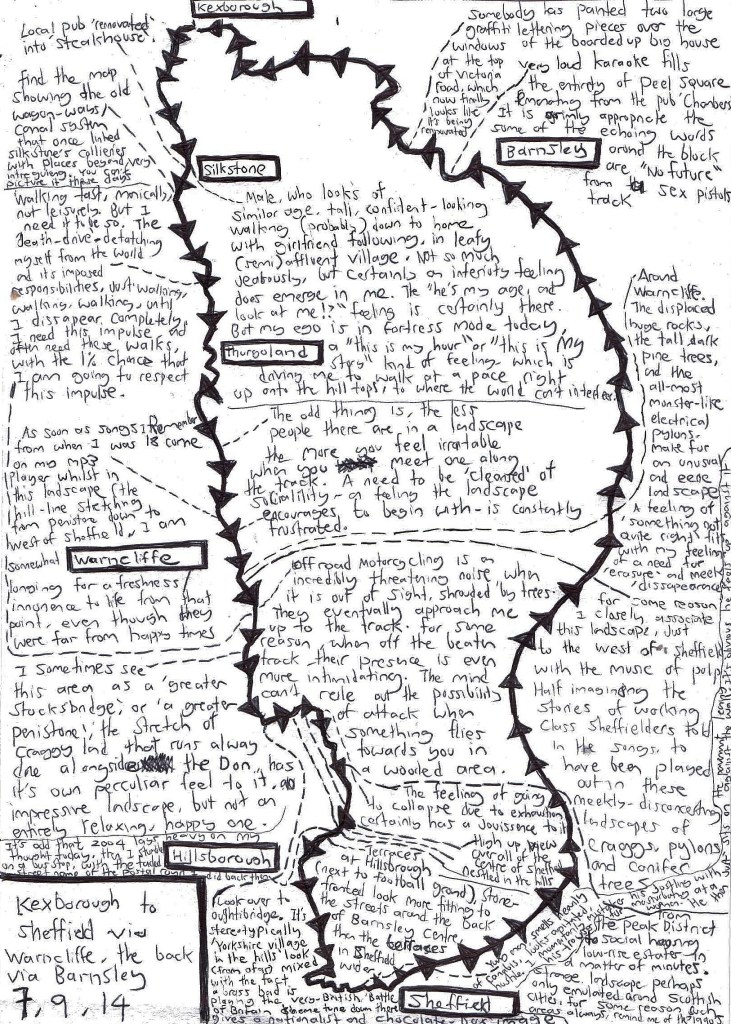 Kexborough
Local pub 'renovated'
into steakhouse.
find the map
showing the old
wagon-ways/
canal system
that once linked
silkstone's collieries
with places beyond, very
intriguing, you can't
picture it these days
Walking fast, manically,
not leisurely. But I
need it to be so. The
death-drive - detatching
myself from the world
and its imposed
responsibilities, Just walking,
walking, walking, until
I dissapear, completely
I need this impulse, and
often need these walks,
with the 1% chance that
I am going to respect
this impulse.
Somebody has painted two large
graffiti lettering pieces over the
windows of the boarded up big house
at the top
of Victoria
road, which
now finally
looks like
it's being
renovated
very loud karaoke fills
the entirety of Peel Square
Emanating from the pub 'Chambers'
It is grimly appropriate the
some of the echoing words
around the block
are "No future"
from the sex pistols
track
Barnsley
Silkstone
Male, who looks of
similar age, tall, confident-looking
walking (probably) down to home
with girlfriend following, in leafy
(semi) affluent village, Not so much
Jealously, but certainly an inferiority feeling
does emerge in me. The "he's my age, and
look at me!?" feeling is certainly there.
But my ego is in fortress mode today,
a "this is my hour" or "this is my
story" kind of feeling which is
driving me to walk at a pace right
up onto the hill tops, to where the world can't interfere.
Thurgoland
The odd thing is, the less
people there are in a landscape
the more you feel irritable
when you meet one along
the track. A need to be 'cleansed' of
sociality - a feeling the landscape
encourages to begin with - is constantly
frustrated.
As soon as songs I remember
from when I was 18 come
on my mp3
player whilst in
this landscape (the
hill-line stretching
from penistone down to
west of sheffield), I am
somewhat
Warncliffe
longing for a freshness/
innocence to life from that
point, even though they
were far from happy times
Around
Warncliffe.
The displaced
huge rocks,
the tall dark
pine trees,
and the
all-most
monster-like
electrical
pylons-
make for
an unusual
and eerie
landscape
A feeling of
something not
quite right; fits
with my feeling
of a need for
erasure - and meet
dissapearance
Off road Motorcycling is an
incredibly threatning noise when
it is out of sight, shrouded by trees.
They eventually approach me
up to the track. for some
reason when off the beaten
track their presence is even
more intimidating. The mind
can't rule out the possibility
of attack when
something flies
towards you in
a wooded area.
I sometimes see
this area as a 'greater
Stocksbridge', or 'a greater
penistone', the stretch of
craggy land that runs alway
alongside the Don, has
it's own peculiar feel to it, an
impressive landscape, but not an
entirely relaxing, happy one.
for some reason
I closely associate
this landscape, Just
to the west of sheffield
with the music of pulp
Half imagining the
stories of working
class Sheffielders told
in the songs, to
have been played
out in these
landscapes of
craggs, pylons,
and conifer
trees
The feeling of going
to collapse due to exhaustion
certainly has a Jouissance to it
High up, view
overall of the
centre of sheffield
nestled in the hills
Hillsborough
Terraces
at Hillsbrough
(next to football grand), stone-
fronted look more fitting to
the streets around the back
of Barnsley Centre,
than the terraces
in Sheffield
wider
Look over to
oughtibridge. It's
stereotypically
'Yorkshire village
in the hills' look
(from afar) mixed
with the fact
a brass band is
playing the very-British 'Battle
of Britain' theme tune down there
gives a nationalist and chocolate-box image
from
the Peak District
to social housing
low-rise estate - in
a matter of minutes.
strange landscape perhaps
only emulated around Scottish
cities. for some reason such
areas always, remind me of the 1990's
Sheffield
Kexborough to
Sheffield via
Warncliffe, the back
via Barnsley
7, 9, 14